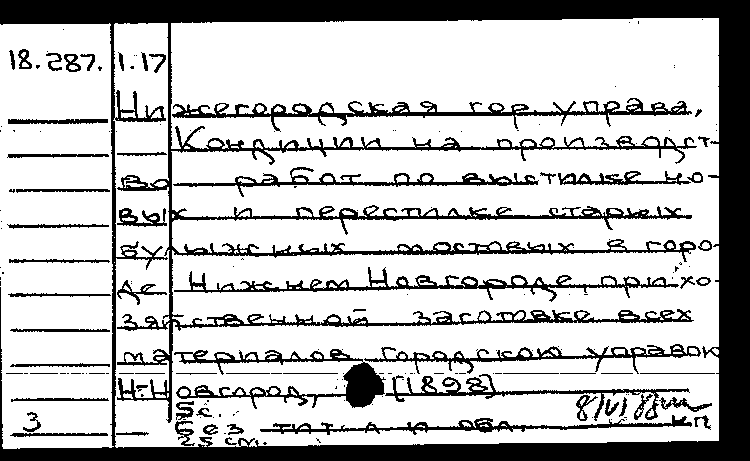 18.287. 1.17
Нижегородская гор. управа,
Кондиции на производст-
во работ по выстилке но-
вых и перестилке старых
булыжных мостовых в горо-
де Нижнем Новгороде, при хо-
зяйственной заготовке всех
материалов городскою управою
Н-Новгород, [1898]
5 с.
3 Без тит. л. и обл. КП
25 см.